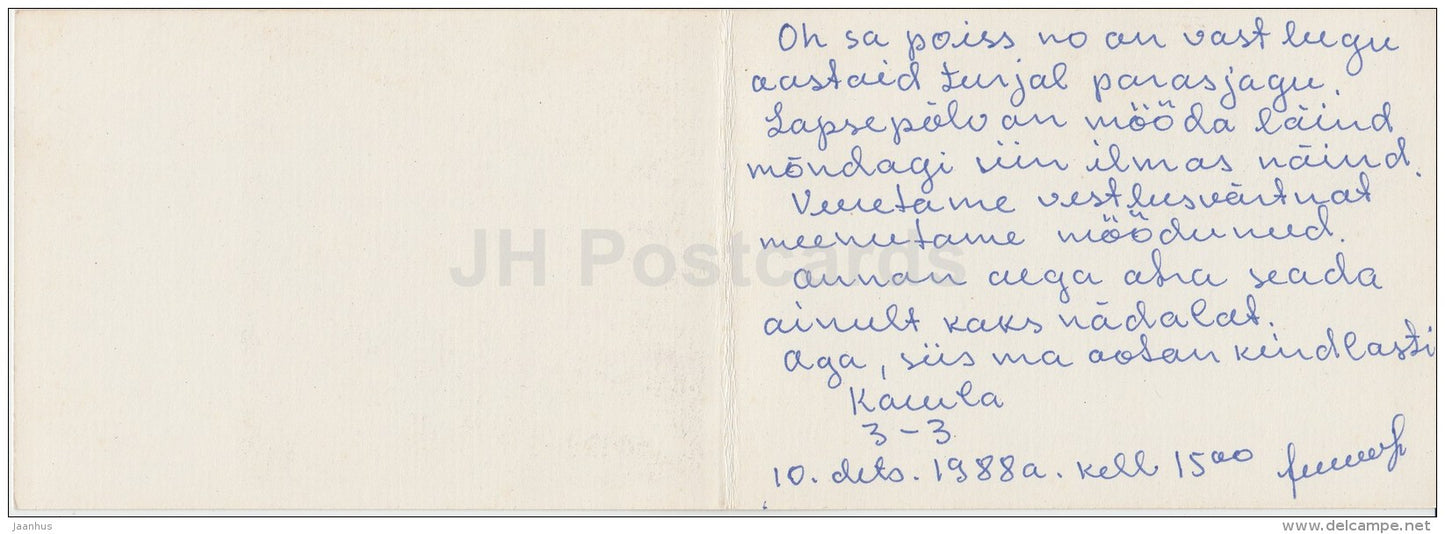 Oh sa poiss no on vast lugu
aastaid turjal parasjagu.
Lapsepõlv on mööda läind
mõndagi siin ilmas näind.
Veedame vestlusväärtnat
meenutame möödunud.
annan aega asja seada
ainult kaks nädalat.
aga, siis ma ootan kindlasti
Kauba
3-3
10. dets. 1988a. kell 15⁰⁰
JH Postcards
Jaanhus
www.delcampe.net